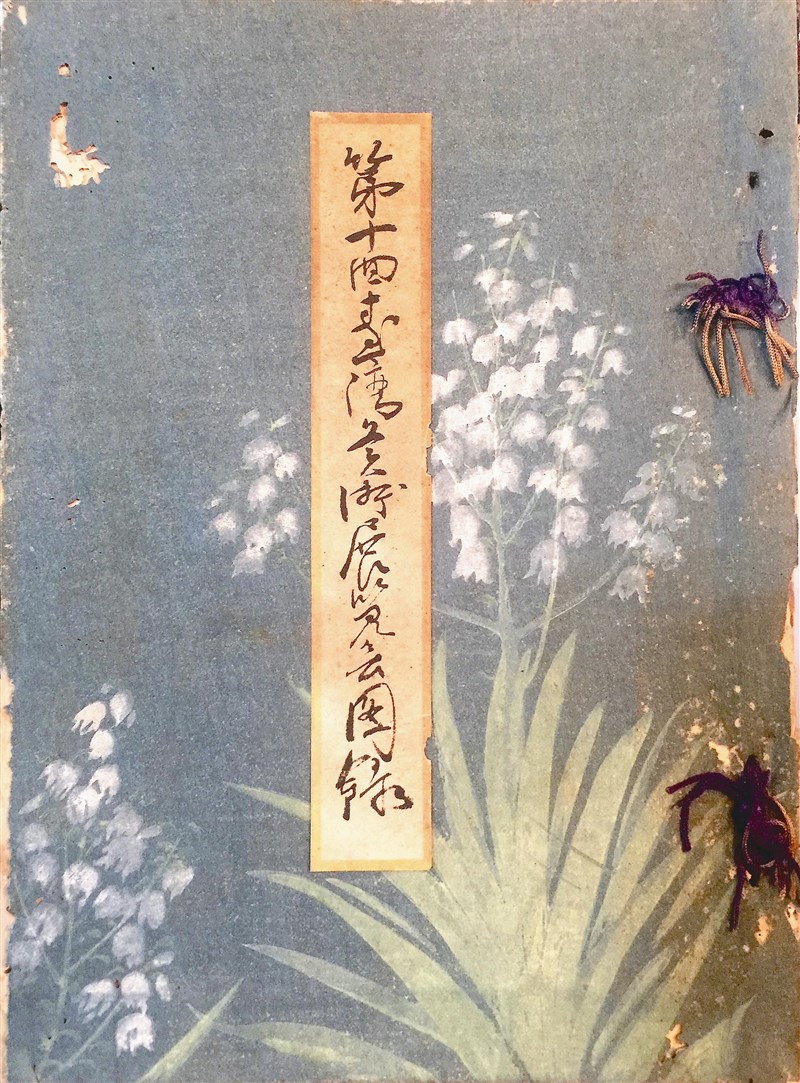 第十回臺灣美術展覽會圖錄